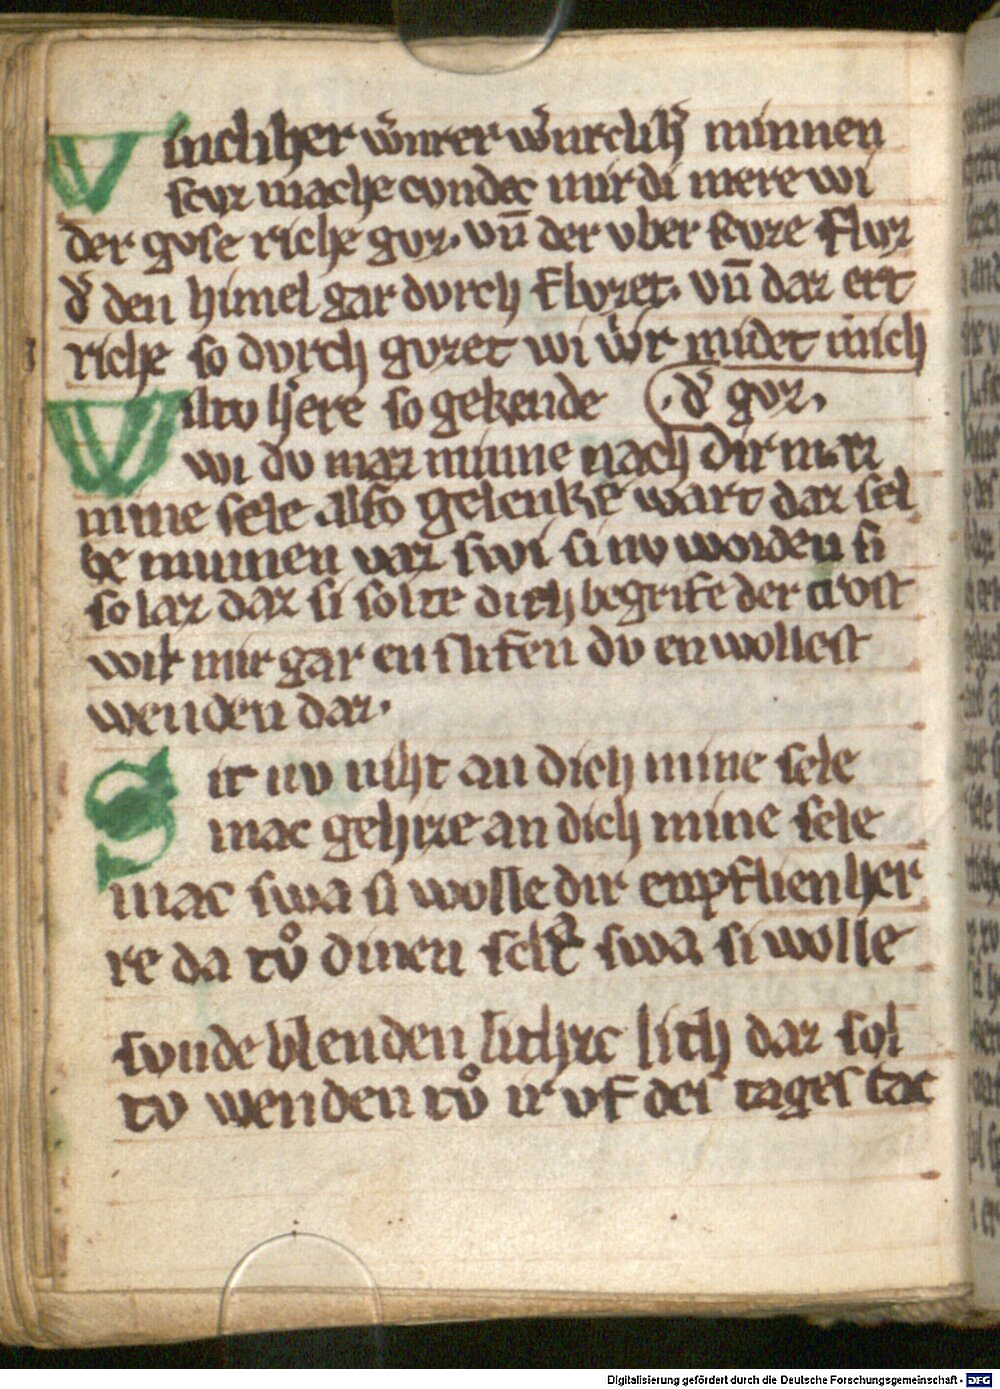 V inclih er vͥnrer wͥnrclihͥ minnen
scvz mache condec mir di mere wi
der gvse riche gvz. vn̄ der vber scvze flvz
dͥ den himel gar dvrch flvzet. vn̄ daz ert
riche so dvrch gvzet wi wͥr midet mich
dͥ gvz.
W iltv here so gebende
wi dv maz minne nach dir
mine sele also gelenke wart daz sel
be minnen vaz swi si nv worden si
so laz daz si solte dich begrife der
wilt mir gar en slifen dv en wollest
wenden daz.
S it nv niht an dich mine sele
mac gehize an dich mine sele
mac swa si wolle dir empflien her
re da tvͦ dinen swa si wolle
svnde blenden lich daz sol
tv wenden tvͦ ir vf des tages tac
Digitalisierung gefördert durch die Deutsche Forschungsgemeinschaft - DFG